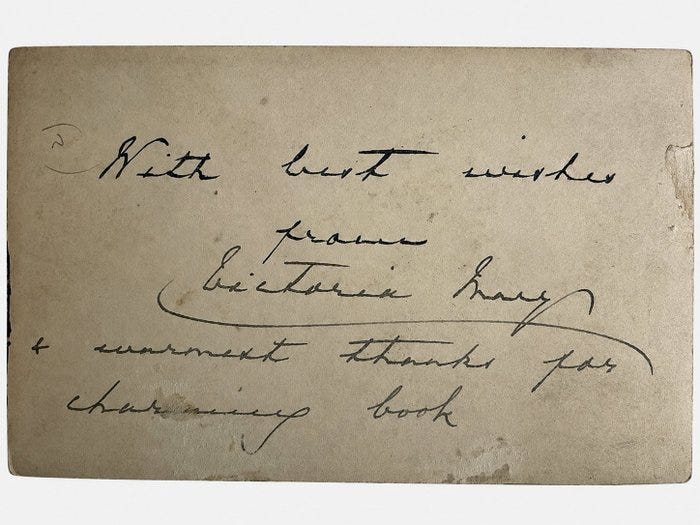 With best wishes
from
Victoria Mary
& warmest thanks for
charming book